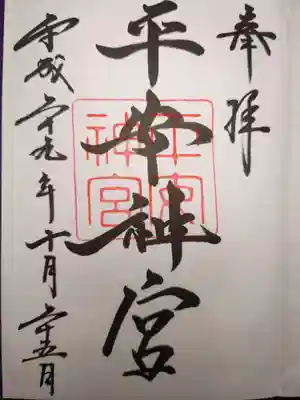 奉拝
平安神宮
平安神宮
平成二十九年十月二十五日